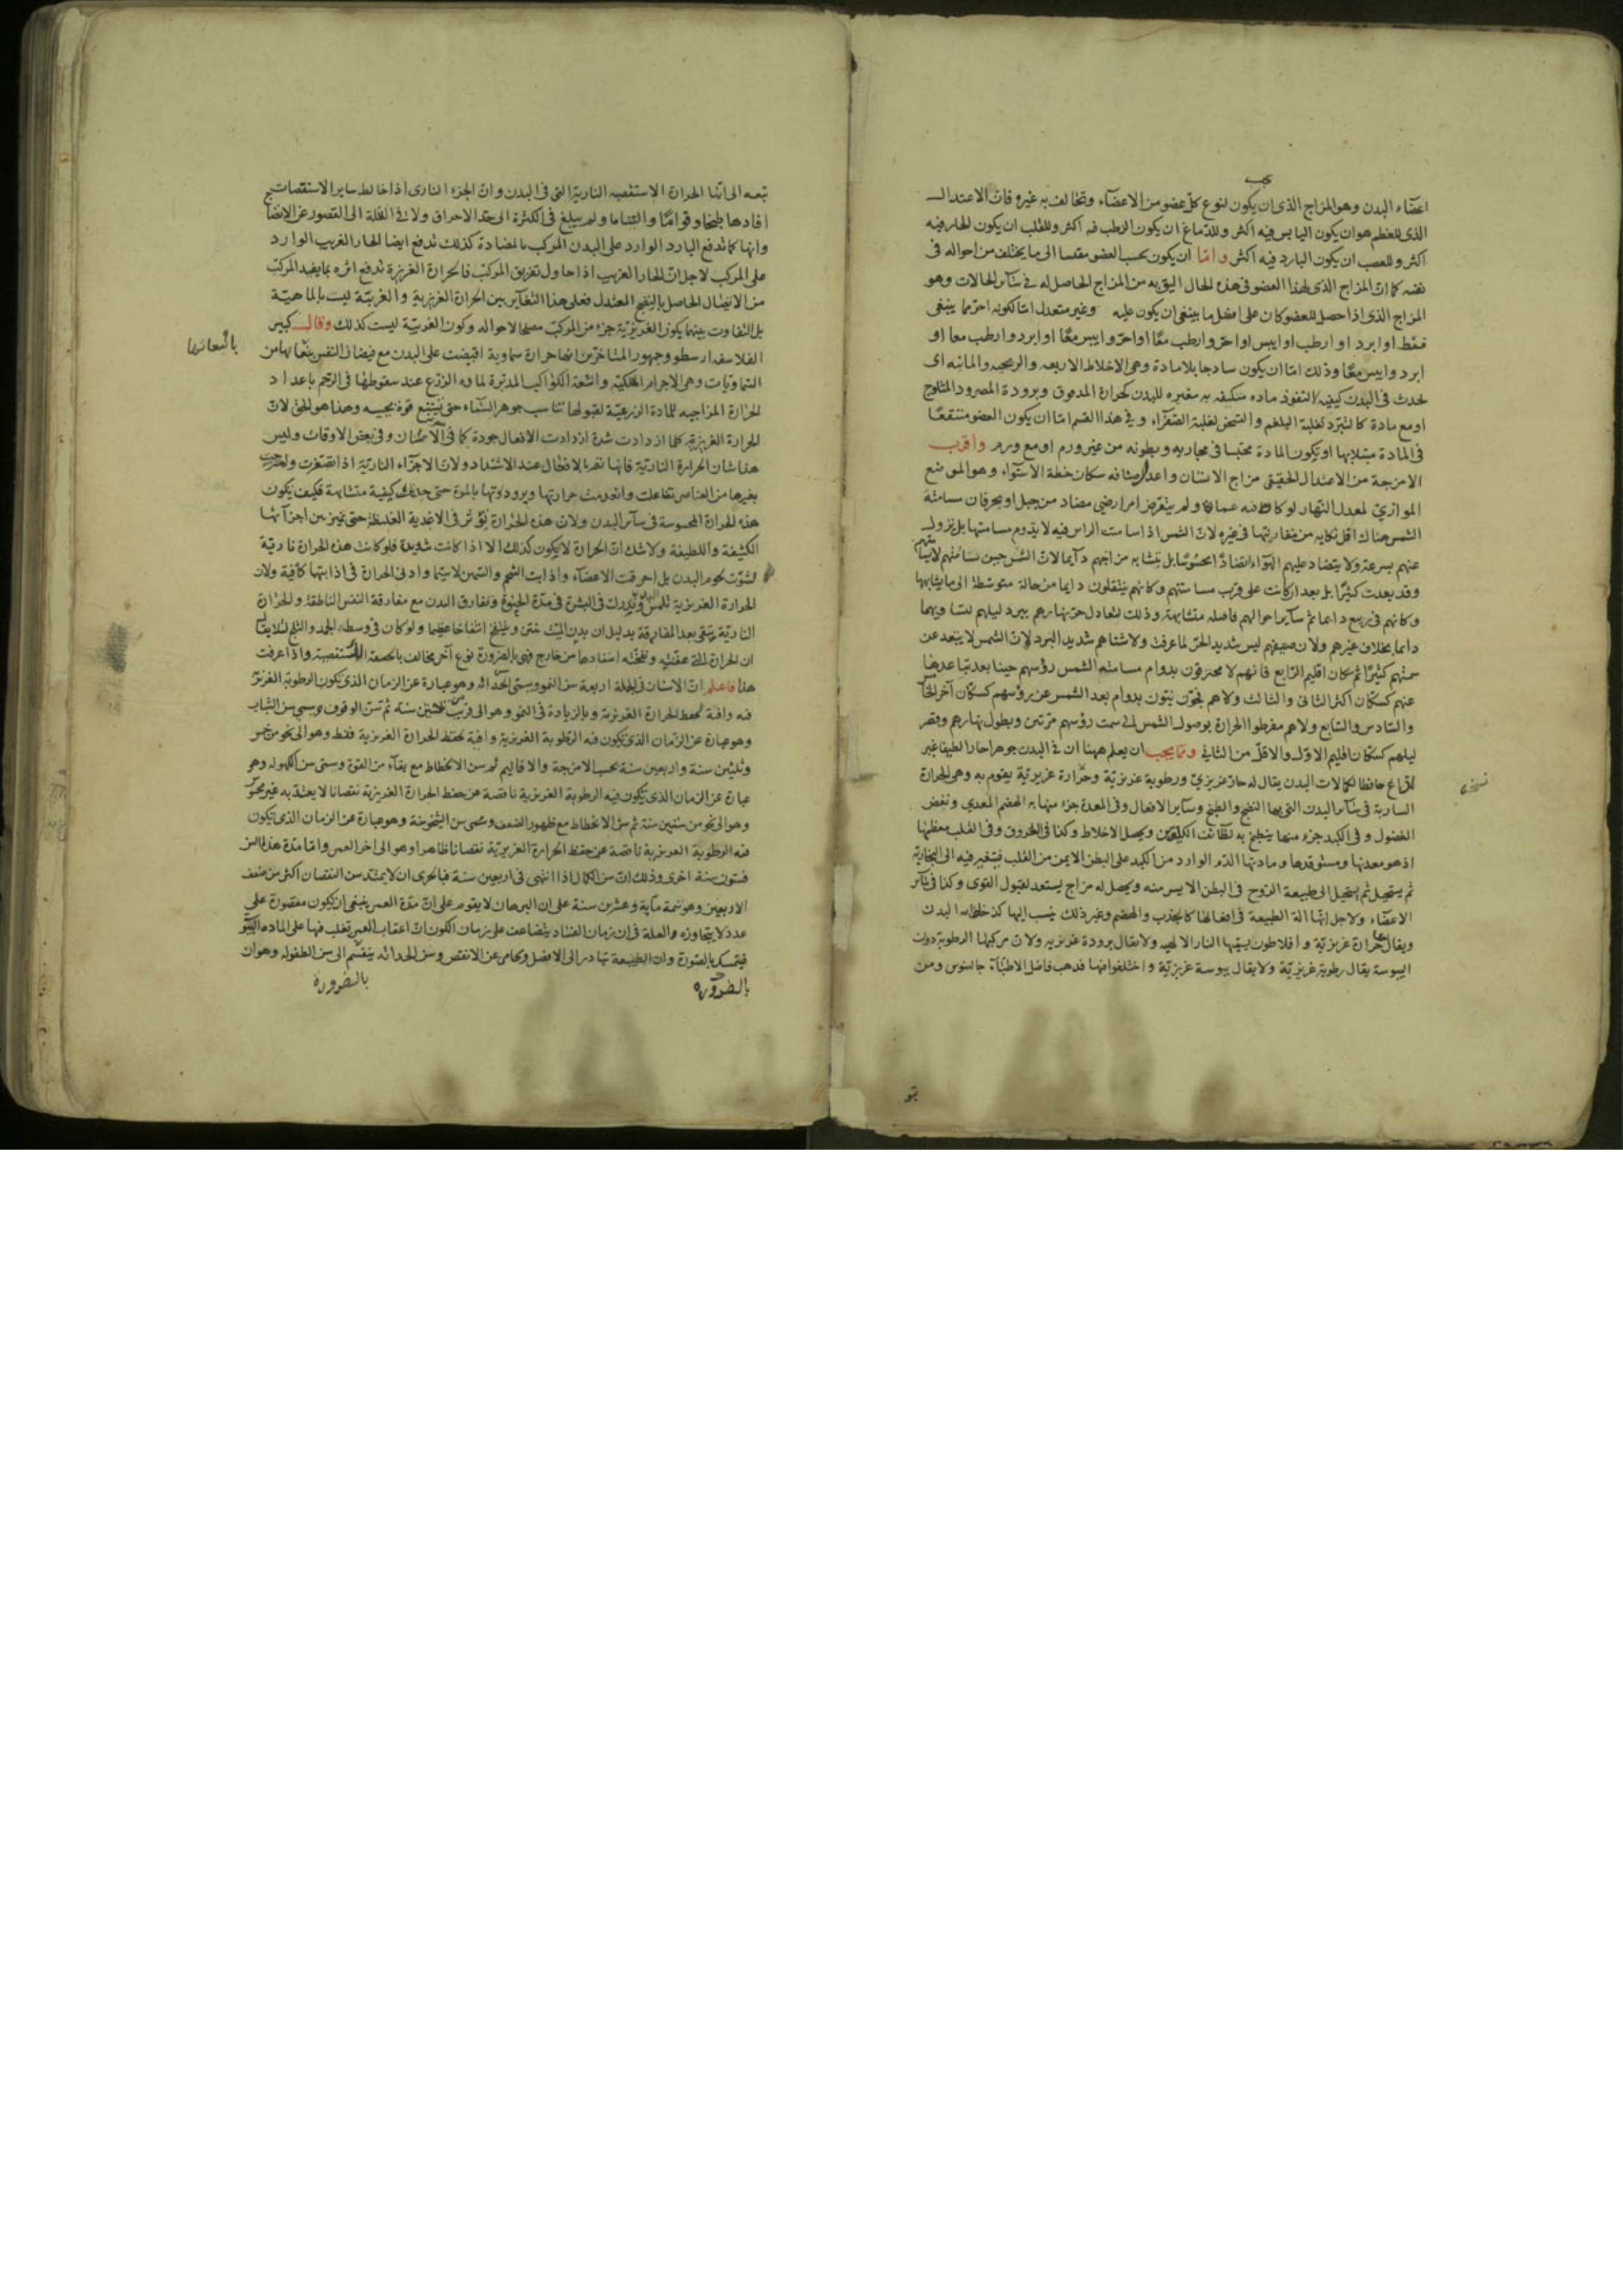 اعضاء البدن وهو المزاج الذى ان يكون لنوع كل عضو من الاعضاء وتخالف به غيره فان الاعتدال
الذى للعظم هو ان يكون اليابس فيه اكثر وللدماغ ان يكون الرطب فيه اكثر وللقلب ان يكون الحار فيه
اكثر وللعصب ان يكون البارد فيه اكثر واما ان يكون بحسب العضو مقيسا الى ما يختلف من احواله فى
نفسه كما ان المزاج الذى لهذا العضو فى هذه الحال اليق به من المزاج الحاصل له فى سائر الحالات وهو
المزاج الذى اذا حصل للعضو كان على افضل ما ينبغى ان يكون عليه وغير معتدل اما لكونه احر مما ينبغى
فقط او ابرد او ارطب او ايبس او احر وارطب معا او احر وايبس معا او ابرد وارطب معا او
ابرد وايبس معا وذلك اما ان يكون ساذجا بلا مادة وهى الاخلاط الاربعه والريحيه والمائيه اى
يحدث فى البدن كيفيه لا لنفوذ ماده متكيفه به مغيره للبدن كحرارة المدقوق وبرودة المصرود المثلوج
او مع مادة كالتبرد لغلبة البلغم والتسخن لغلبة الصفراء وفى هذا القسم اما ان يكون العضو منتقعا
فى المادة مبتلا بها او تكون المادة محتبسا فى مجاريه وبطونه من غير ورم او مع ورم واقرب
الامزجة من الاعتدال الحقيقى مزاج الانسان واعدل اصنافه سكان خطة الاستواء وهو الموضع
الموازي لمعدل النهار لو كان فيه عمارة ولم يتعرض امر ارضى مضاد من جبل او بحر فان مسامتة
الشمس هناك اقل نكايه من مقاربتها فى غيره لان الشمس اذا سامت الراس فيه لا يدوم مسامتها بل تزول
عنهم بسرعة ولا يتضاد عليهم الهواء تضادا محسوسا بل يتشابه مزاجهم دآيما لان الشمس حين تسامتهم
وقد بعدت كثيرا بل بعد ان كانت على قرب مسامتتهم وكانهم ينتقلون دايما من حالة متوسطة الى ما يشابهها
وكانهم فى ربيع دائما ثم سائر احوالهم فاضله متشابهة وذلك لتعادل حر نهارهم ببرد ليلهم لتساويهما
دايما بخلاف غيرهم ولان صيفهم ليس شديد الحر لما عرفت ولا شتاهم شديد البرد لان الشمس لا يتبعد عن
سمتهم كثيرا ثم سكان اقليم الرابع فانهم لا محترقون بدوام مسامتة الشمس رؤسهم حينا بعد تباعدها
عنهم كسكان اكثر الثانى والثالث ولا هم فجون نيون بدوام بعد الشمس عن رؤسهم كسكان آخر الخامس
والسادس والسابع ولا هم مفرطوا الحرارة بوصول الشمس الى سمت رؤسهم مرتين وبطول نهارهم وقصر
ليلهم كسكان اقليم الاول والاقل من الثانى ومما يجب ان يعلم ههنا ان فى البدن جوهرا حارا لطيفا غير
لذاع حافظا لكمالات البدن يقال له حار غريزي ورطوبة غريزية وحرارة غريزية يقوم به وهى الحرارة
السارية فى سائر البدن التى بها النضج والطبخ وساير الافعال وفى المعدة جزء منها به الهضم المعدي ونفض
الفضول وفى الكبد جزء منها ينطبخ به لطائف الكيلوس ويحصل الاخلاط وكذا فى العروق وفى القلب معظمها
اذ هو معدنها ومستوقدها ومادتها الدم الوارد من الكبد على البطن الايمن من القلب فيتغير فيه الى البخارية
ثم يستحيل ثم يستحيل الى طبيعة الروح فى البطن الايسر منه ويحصل له مزاج يستعد لقبول القوى وكذا فى سائر
الاعضاء ولاجل انها الة الطبيعة فى افعالها كالجذب والهضم وغير ذلك ينسب اليها كدخداىة البدن
ويقال لها حرارة غريزية وافلاطون يسميها النار الالهيه ولا يقال برودة غريزيه ولان مركبها الرطوبة دون
اليبوسة يقال رطوبة غريزية ولا يقال يبوسة غريزية واختلفوا فيها فذهب فاضل الاطباء جالينوس ومن
نسخه
تبعه الى انها الحرارة الاستقصيه النارية التى فى البدن وان الجزء النارى اذا خالط ساير الاستقصات
افادها طبخا وقواما والتئاما ولم يبلغ فى الكثرة الى حد الاحراق ولا فى القلة الى القصور عن الانضاج
وانها كما تدفع البارد الوارد على البدن المركب بالمضادة كذلك تدفع ايضا الحار الغريب الوارد
على المركب لاجل ان الحار الغريب اذا حاول تفريق المركب فالحرارة الغريزة تدفع اثره بما يفيد المركب
من الاتصال الحاصل بالنضج المعتدل فعلى هذا التغاير بين الحرارة الغريزية والغريبة ليست بالماهية
بل التفاوت بينهما بكون الغريزية جزء من المركب مصلحا لاحواله وكون الغريبة ليست كذلك وقال كبير
الفلاسفه ارسطو وجمهور المتاخرين انها حرارة سماوية افيضت على البدن مع فيضان النفس
السماويات وهى الاجرام الفلكية واشعة الكواكب المدبرة لمادة الزرع عند سقوطها فى الرحم باعداد
الحرارة المزاجيه للمادة الزرعية لقبولها تناسب جوهر السماء حتى وهذا هو الحق لان
الحرارة الغريزية كلما ازدادت شدة ازدادت الافعال جودة كما فى الاسنان وفى بعض الاوقات وليس
هذا شان الحرارة النارية فانها تضر بالافعال عند الاشتداد ولان الاجزاء النارية اذا تصغرت وامتزجت
بغيرها من العناصر تفاعلت وانعدمت حرارتها وبرودتها بالمرة حتى حدثت كيفية متشابهة فكيف تكون
هذه الحرارة المحسوسة فى سائر البدن ولان هذه الحرارة تؤثر فى الاغدية الغليظة حتى تميز بين اجزآئها
الكثيفة واللطيفة ولا شك ان الحرارة لا يكون كذلك الا اذا كانت شديدة فلو كانت هذه الحرارة نارية
لشوت لحوم البدن بل احرقت الاعضاء واذابت الشحم والسمن لا سيما وادنى الحرارة فى اذابتها كافية ولان
الحرارة الغريزية تلمس وتدرك فى البشرة فى مدة الحيوة وتفارق البدن مع مفارقة النفس الناطقة والحرارة
النارية تبقى بعد المفارقة بدليل ان بدن الميت ينتن وينتفخ انتفاخا عظيما ولو كان فى وسط الجمد والثلج
ان الحرارة التى عفنته ونفخته استفادها من خارج فهى بالضرورة نوع آخر مخالف بالحقيقة للاستقصية واذا عرفت
هذا فاعلم ان الاسنان فى الجملة اربعة سن النمو ويسمى الحداثه وهو عبارة عن الزمان الذى تكون الرطوبة الغريزية
فيه وافية لحفظ الحرارة الغريزية وبالزيادة فى النمو وهو الى قريب من ثلثين سنة ثم سن الوقوف ويسمى سن الشباب
وهو عبارة عن الزمان الذى تكون فيه الرطوبة الغريزية وافية لحفظ الحرارة الغريزية فقط وهو الى نحو من خمس
وثلثين سنة واربعين سنة بحسب الامزجة والاقاليم ثم سن الانحطاط مع بقآء من القوة وسمى سن الكهوله وهو
عبارة عن الزمان الذى تكون فيه الرطوبة الغريزية ناقصة عن حفظ الحرارة الغريزية نقصانا لا يعتد به غير محسوس
وهو الى نحو من ستين سنة ثم سن الانحطاط مع ظهور الضعف وسمى سن الشيخوخة وهو عبارة عن الزمان الذى تكون
فيه الرطوبة الغريزية ناقصة عن حفظ الحرارة الغريزية نقصانا ظاهرا وهو الى اخر العمر واما مدة هذا السن
فستون سنة اخرى وذلك ان سن الكمال اذا انتهى فى اربعين سنة فبالحرى ان لا يمتد سن النقصان اكثر من ضعف
الاربعين وهو تتمة ماية وعشرين سنة على ان البرهان لا يقوم على ان مدة العمر ينبغى ان يكون مقصورة على
عدد لا يتجاوزه والعلة فى ان زمان الفساد يتضاعف على زمان الكون ان اعقاب العمر تغلب فيها على الماده
فيتمسك بالصورة وان الطبيعة تبادر الى الافضل وتحامى عن الانقص وسن الحداثه ينقسم الى سن الطفوله وهو ان
بالضرورة
بالضرورة
باشعاتها